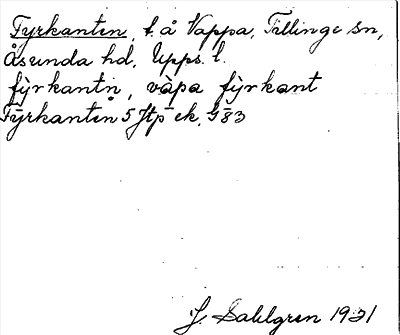 Fyrkanten, t. å Vappa, Tillinge sn,
Åsunda hd, Upps. l.
fỳrkantn̥, vàpa fỳrkant
Fyrkanten 5 Jtp ek. G83
J. Sahlgren 1931